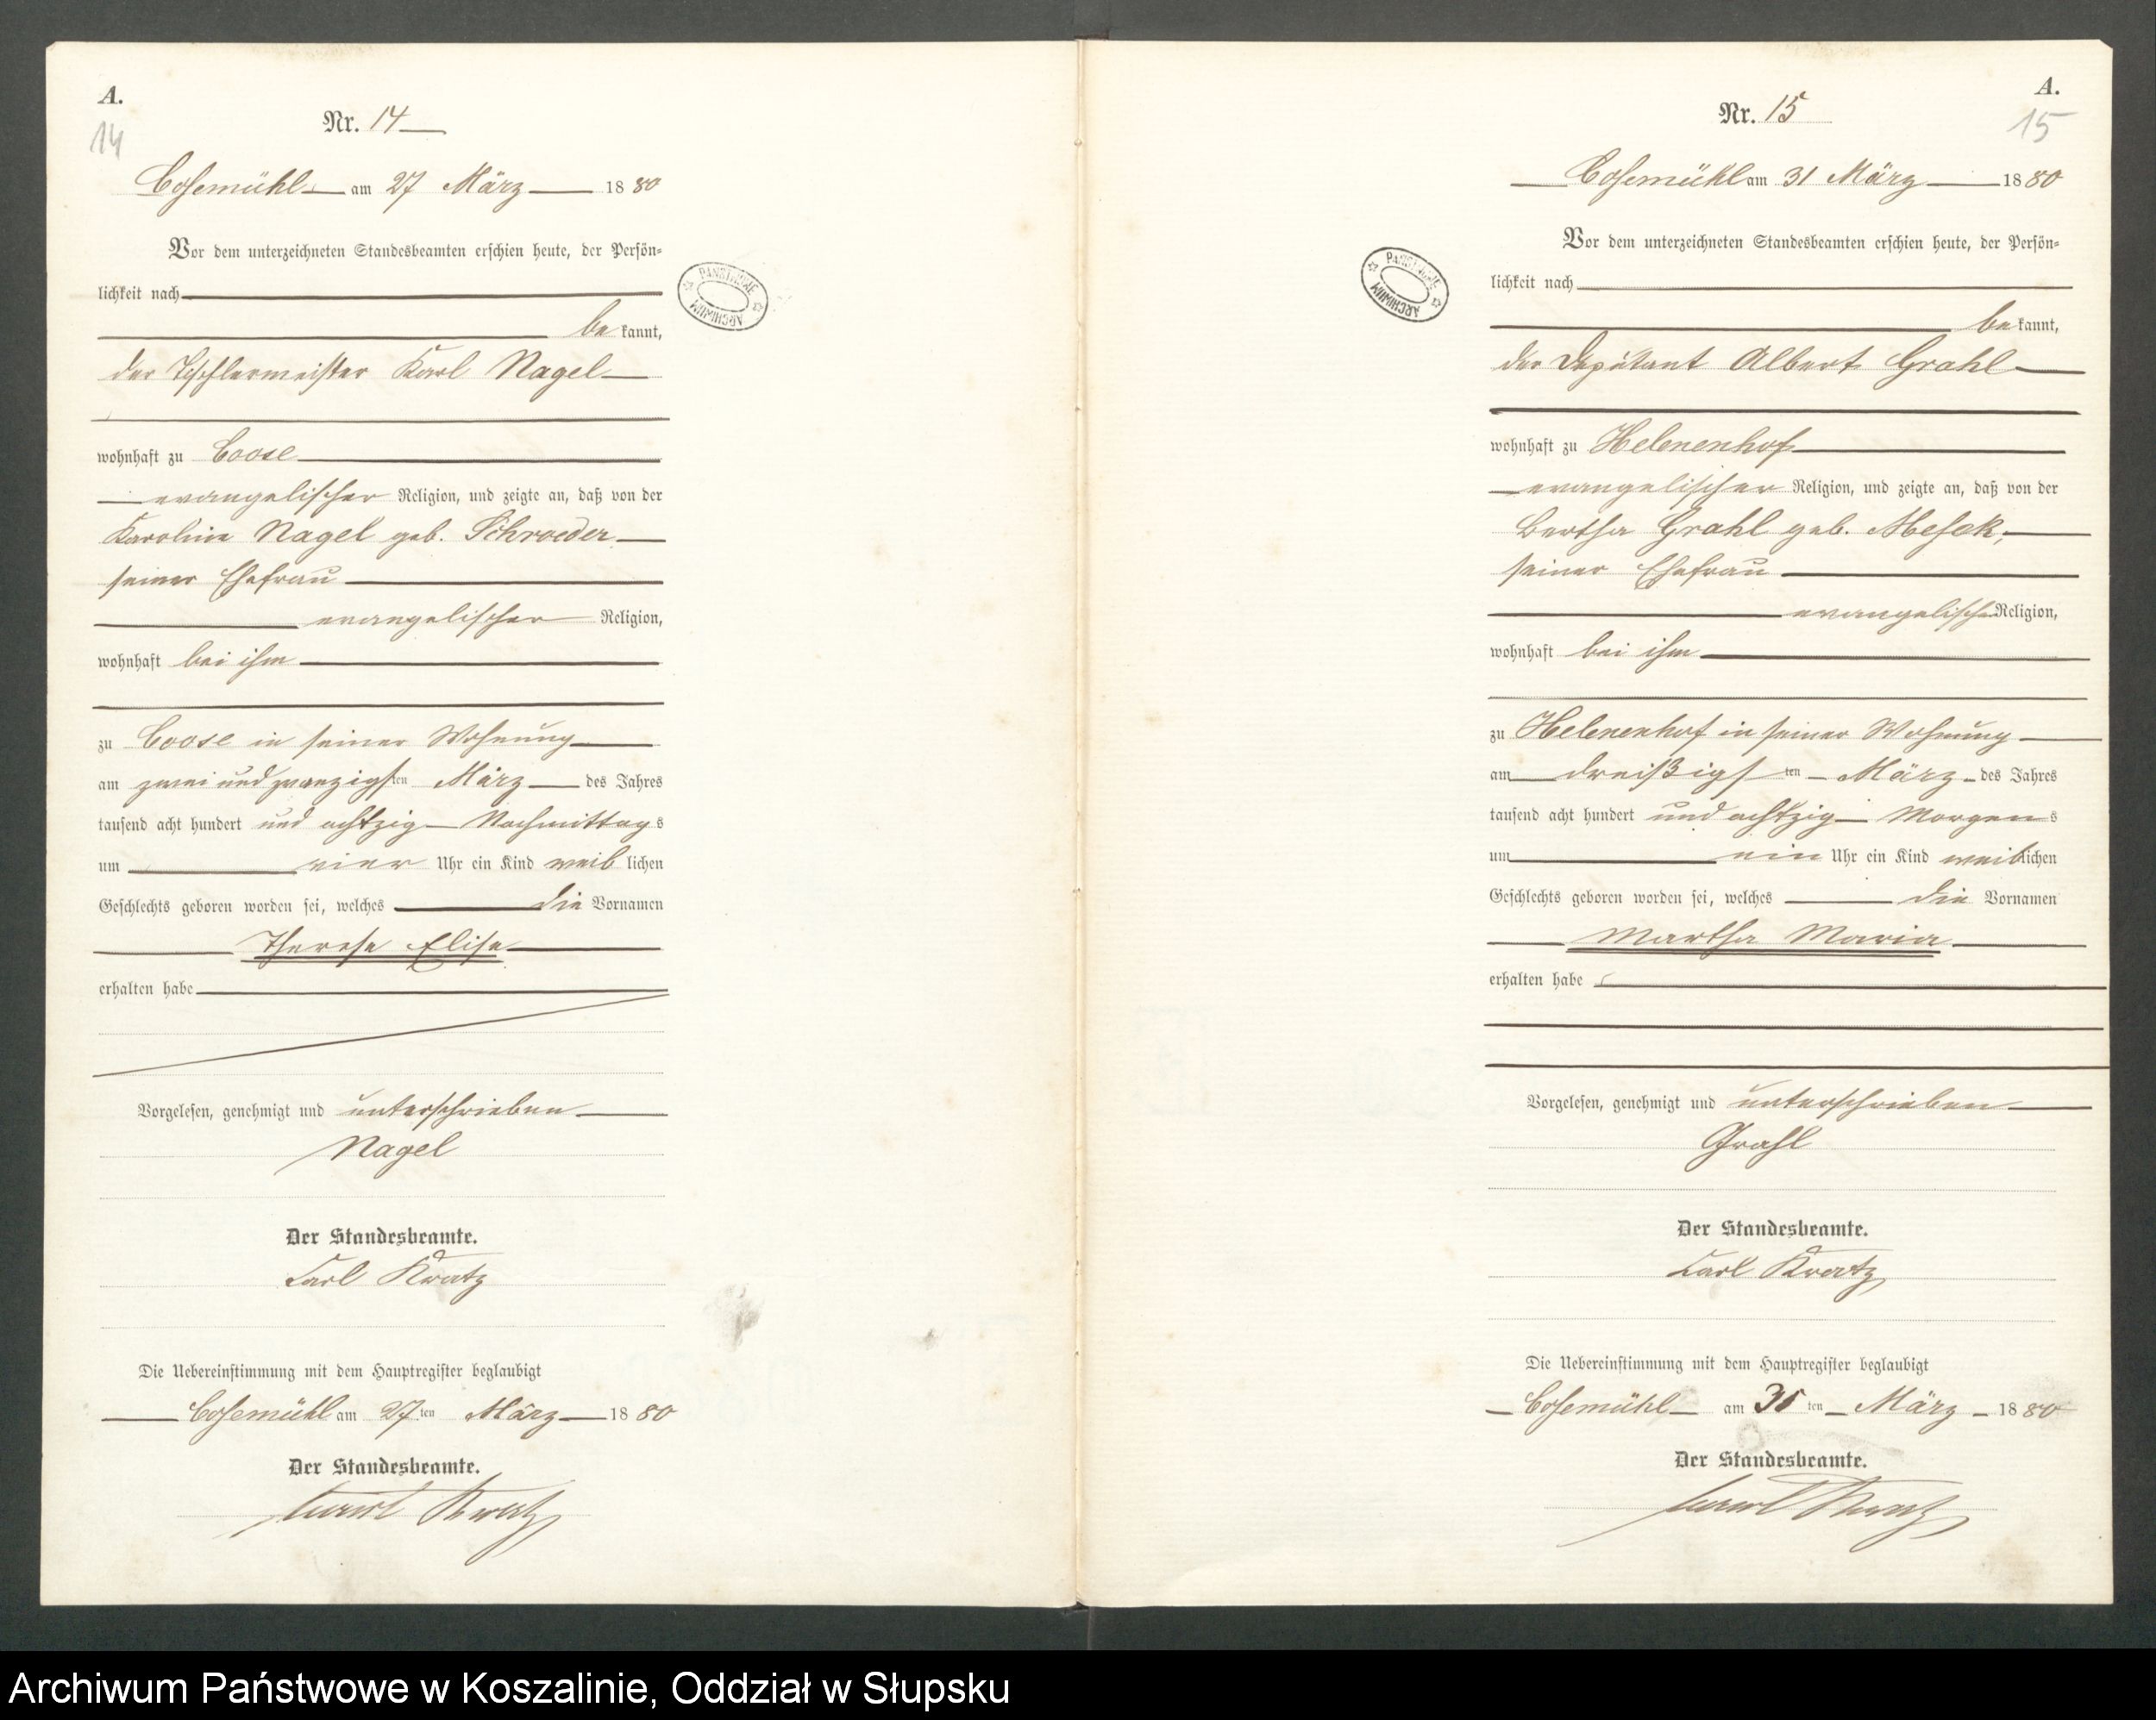 A.
14
Nr. 14
Cosemühl am 27 März 1880
Vor dem unterzeichneten Standesbeamten erschien heute, der Persön=
lichkeit nach
be kannt,
der Tischlermeister Karl Nagel
wohnhaft zu Coose
evangelischer Religion, und zeigte an, daß von der
Karoline Nagel geb. Schroeder
seiner Ehefrau
evangelischer Religion,
wohnhaft bei ihm
zu Coose in seiner Wohnung
am zwei und zwanzigsten März des Jahres
tausend acht hundert und achtzig Nachmittags
um vier Uhr ein Kind weib lichen
Geschlechts geboren worden sei, welches die Vornamen
Therese Elise
erhalten habe
Vorgelesen, genehmigt und unterschrieben
Nagel
Der Standesbeamte.
Carl Kratz
Die Uebereinstimmung mit dem Hauptregister beglaubigt
Cosemühl am 27ten März 1880
Der Standesbeamte.
Carl Kratz
PAŃSTWOWE ARCHIWUM
A.
15
Nr. 15
Cosemühl am 31 März 1880
Vor dem unterzeichneten Standesbeamten erschien heute, der Persön=
lichkeit nach
be kannt,
der Deputant Albert Grahl
wohnhaft zu Helenenhof
evangelischer Religion, und zeigte an, daß von der
Bertha Grahl geb. Mesek,
seiner Ehefrau
evangelischer Religion,
wohnhaft bei ihm
zu Helenenhof in seiner Wohnung
am dreißigsten März des Jahres
tausend acht hundert und achtzig Morgens
um ein Uhr ein Kind weiblichen
Geschlechts geboren worden sei, welches die Vornamen
Martha Maria
erhalten habe
Vorgelesen, genehmigt und unterschrieben
Grahl
Der Standesbeamte.
Carl Kratz
Die Uebereinstimmung mit dem Hauptregister beglaubigt
Cosemühl am 31ten März 1880
Der Standesbeamte.
Carl Kratz
PAŃSTWOWE ARCHIWUM
Archiwum Państwowe w Koszalinie, Oddział w Słupsku